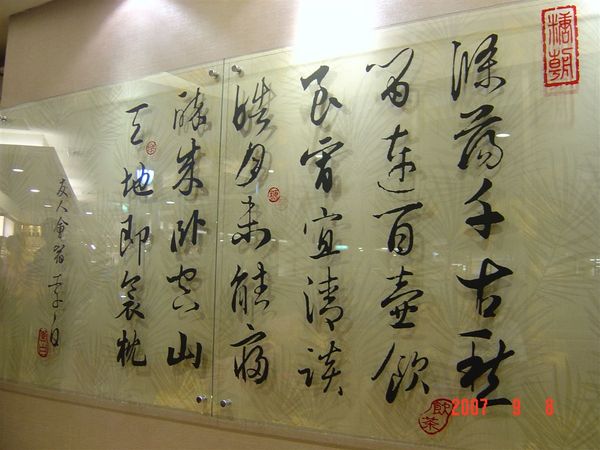 糖朝
滌蕩千古愁
留連百壺飲
良宵宜清談
皓月未能寢
醉來臥空山
天地即衾枕
友人會宿 李白
飲茶
2007 9 8